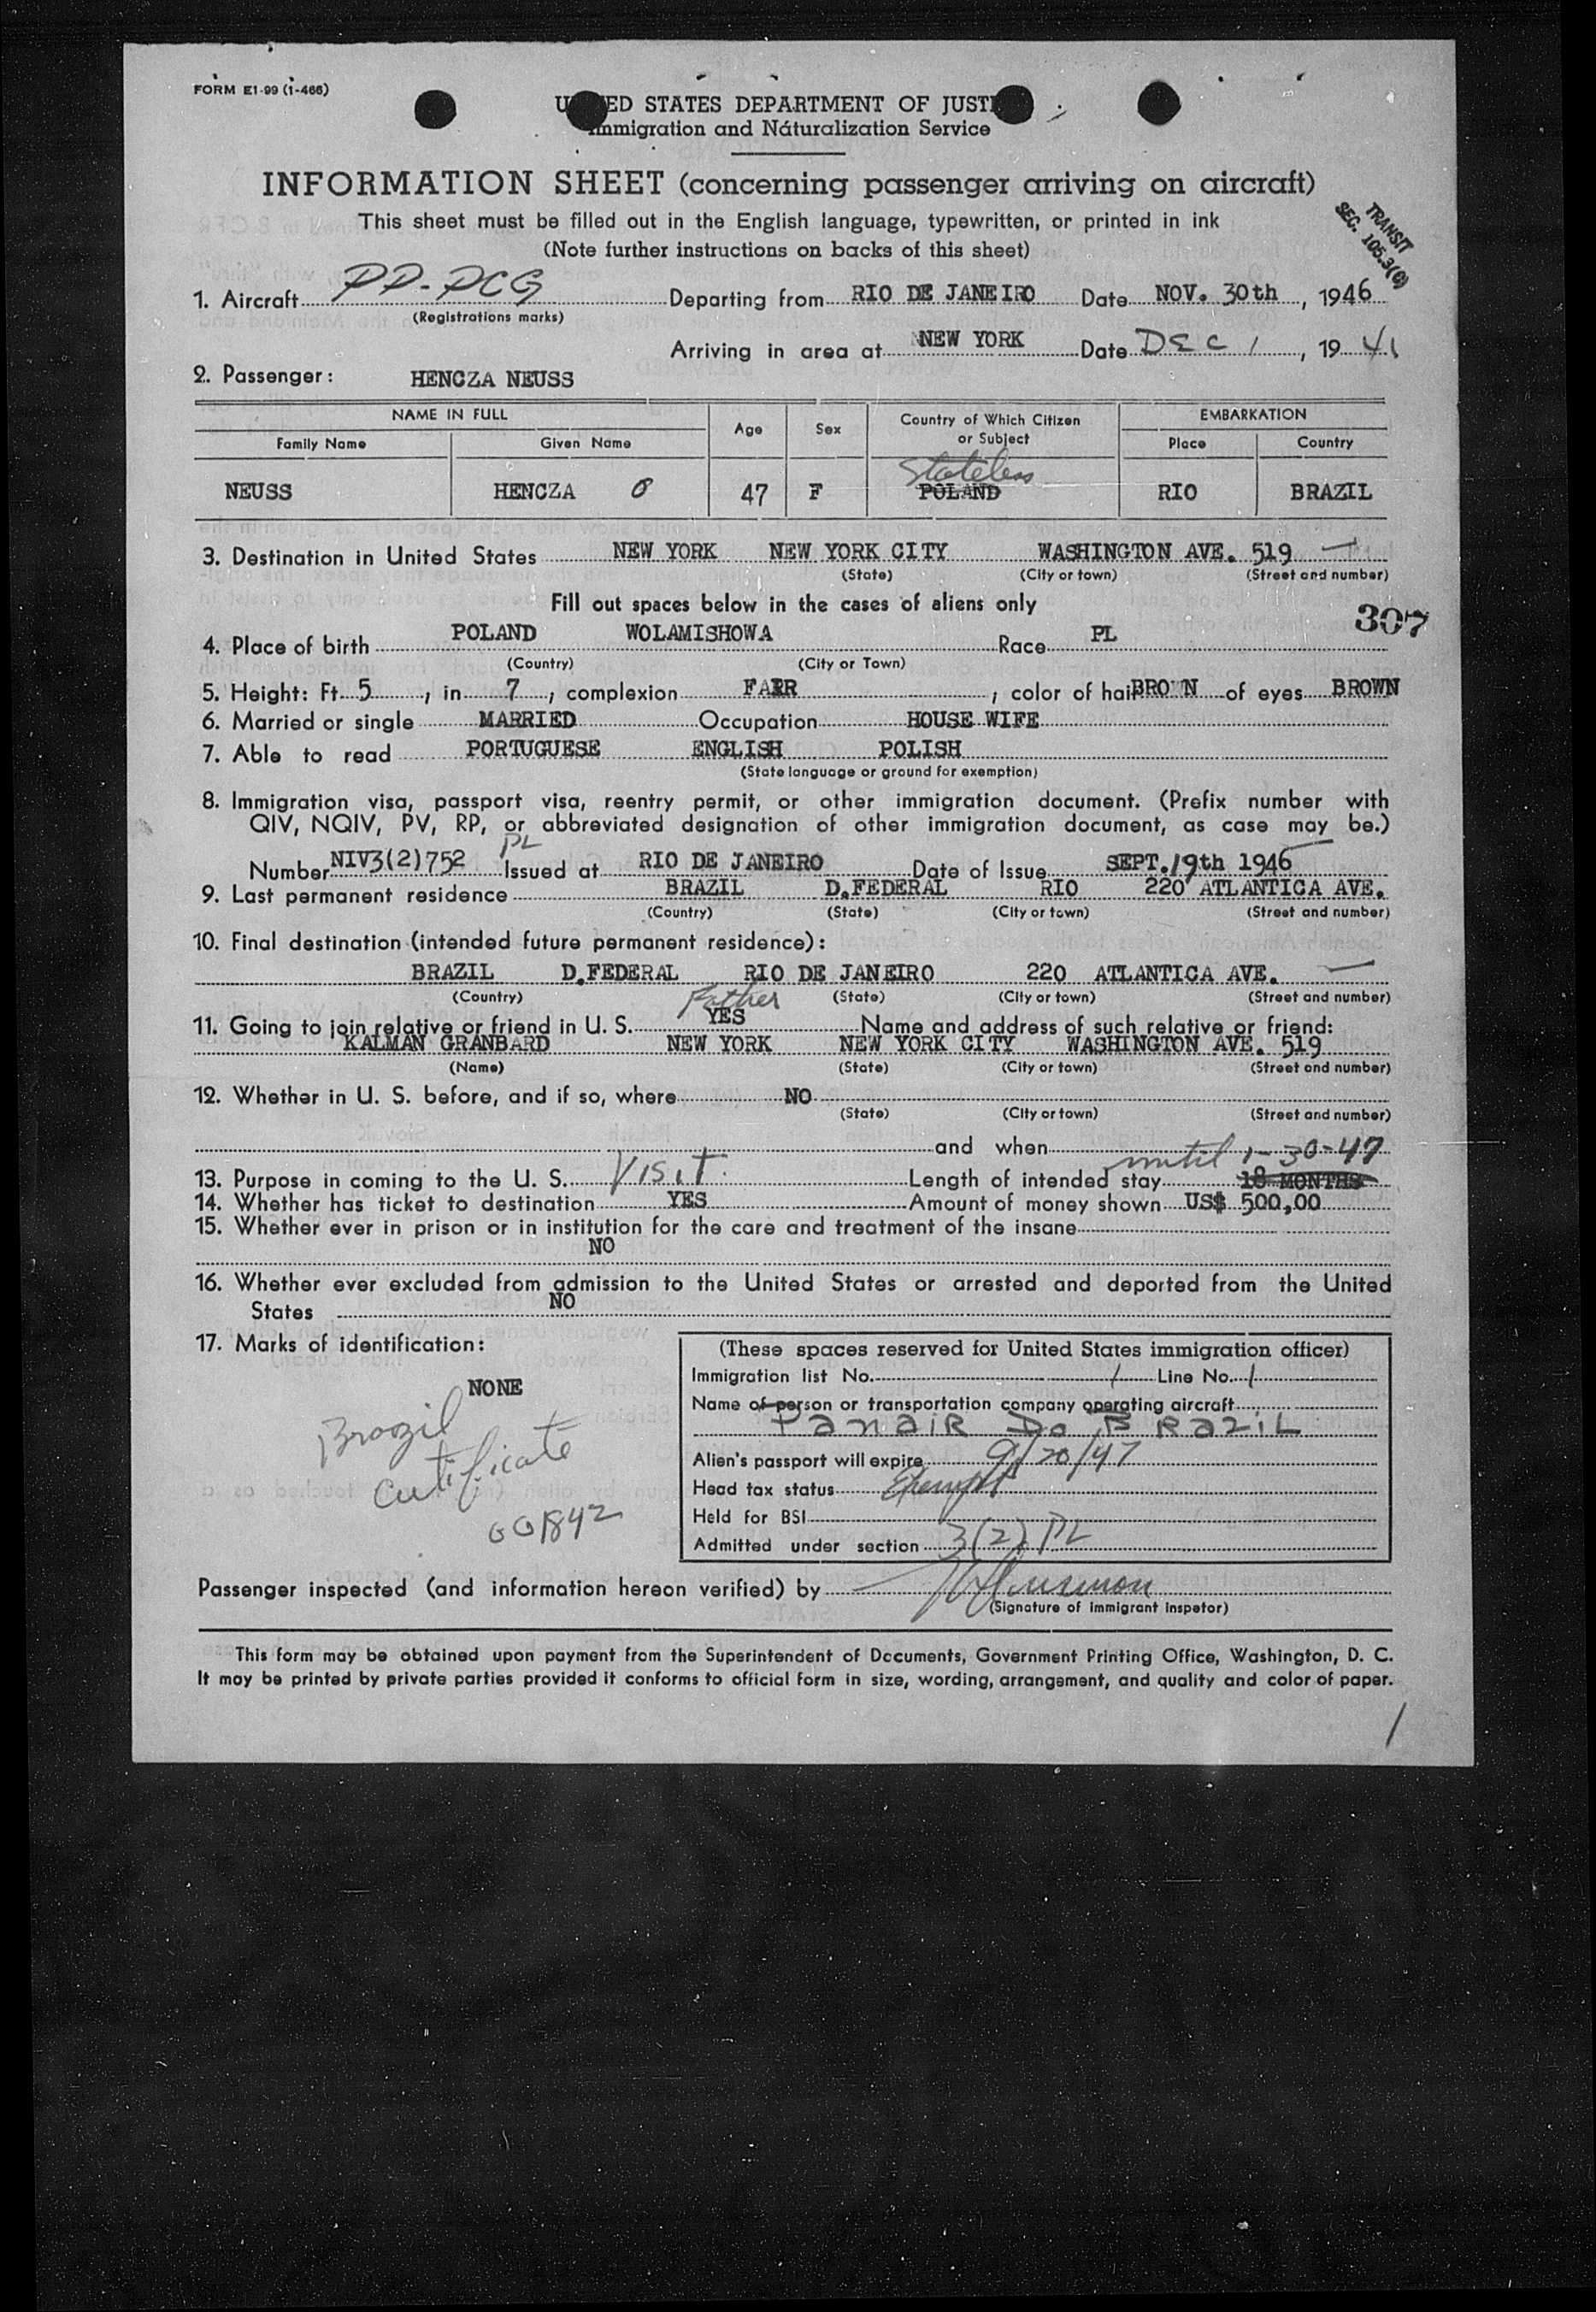 FORM E1-99 (1-466)
UNITED STATES DEPARTMENT OF JUSTICE
Immigration and Naturalization Service
INFORMATION SHEET (concerning passenger arriving on aircraft)
This sheet must be filled out in the English language, typewritten, or printed in ink
(Note further instructions on backs of this sheet)
TRANSIT
SEC. 105.3(C)
1. Aircraft PP-PCG Departing from RIO DE JANEIRO Date NOV. 30th, 1946
(Registrations marks)
Arriving in area at NEW YORK Date DEC 1, 19
2. Passenger: HENCZA NEUSS
NAME IN FULL Age Sex Country of Which Citizen or Subject EMBARKATION
Family Name Given Name Place Country
Stateless
NEUSS HENCZA 47 F POLAND RIO BRAZIL
3. Destination in United States NEW YORK NEW YORK CITY WASHINGTON AVE. 519
(State) (City or town) (Street and number)
Fill out spaces below in the cases of aliens only
307
4. Place of birth POLAND WOLAMISHOWA Race PL
(Country) (City or Town)
5. Height: Ft. 5, in 7, complexion FAIR; color of hair BROWN of eyes BROWN
6. Married or single MARRIED Occupation HOUSE WIFE
7. Able to read PORTUGUESE ENGLISH POLISH
(State language or ground for exemption)
8. Immigration visa, passport visa, reentry permit, or other immigration document. (Prefix number with
QIV, NQIV, PV, RP, or abbreviated designation of other immigration document, as case may be.)
PL
Number NIV3(2)752 Issued at RIO DE JANEIRO Date of Issue SEPT. 19th 1946
9. Last permanent residence BRAZIL D.FEDERAL RIO 220 ATLANTICA AVE.
(Country) (State) (City or town) (Street and number)
10. Final destination (intended future permanent residence):
BRAZIL D.FEDERAL RIO DE JANEIRO 220 ATLANTICA AVE.
(Country) (State) (City or town) (Street and number)
Father
11. Going to join relative or friend in U. S. YES Name and address of such relative or friend:
KALMAN GRANBARD NEW YORK NEW YORK CITY WASHINGTON AVE. 519
(Name) (State) (City or town) (Street and number)
12. Whether in U. S. before, and if so, where NO
(State) (City or town) (Street and number)
and when
until 1-30-47
13. Purpose in coming to the U. S. Visit. Length of intended stay 18 MONTHS
14. Whether has ticket to destination YES Amount of money shown US$ 500,00
15. Whether ever in prison or in institution for the care and treatment of the insane
NO
16. Whether ever excluded from admission to the United States or arrested and deported from the United
States NO
17. Marks of identification:
NONE
Brazil
Certificate
001842
(These spaces reserved for United States immigration officer)
Immigration list No. 1 Line No. 1
Name of person or transportation company operating aircraft
Panair Do Brazil
Alien's passport will expire 9/20/47
Head tax status Exempt
Held for BSI
Admitted under section 3(2) PL
Passenger inspected (and information hereon verified) by
(Signature of immigrant inspetor)
This form may be obtained upon payment from the Superintendent of Documents, Government Printing Office, Washington, D. C.
It may be printed by private parties provided it conforms to official form in size, wording, arrangement, and quality and color of paper.
1